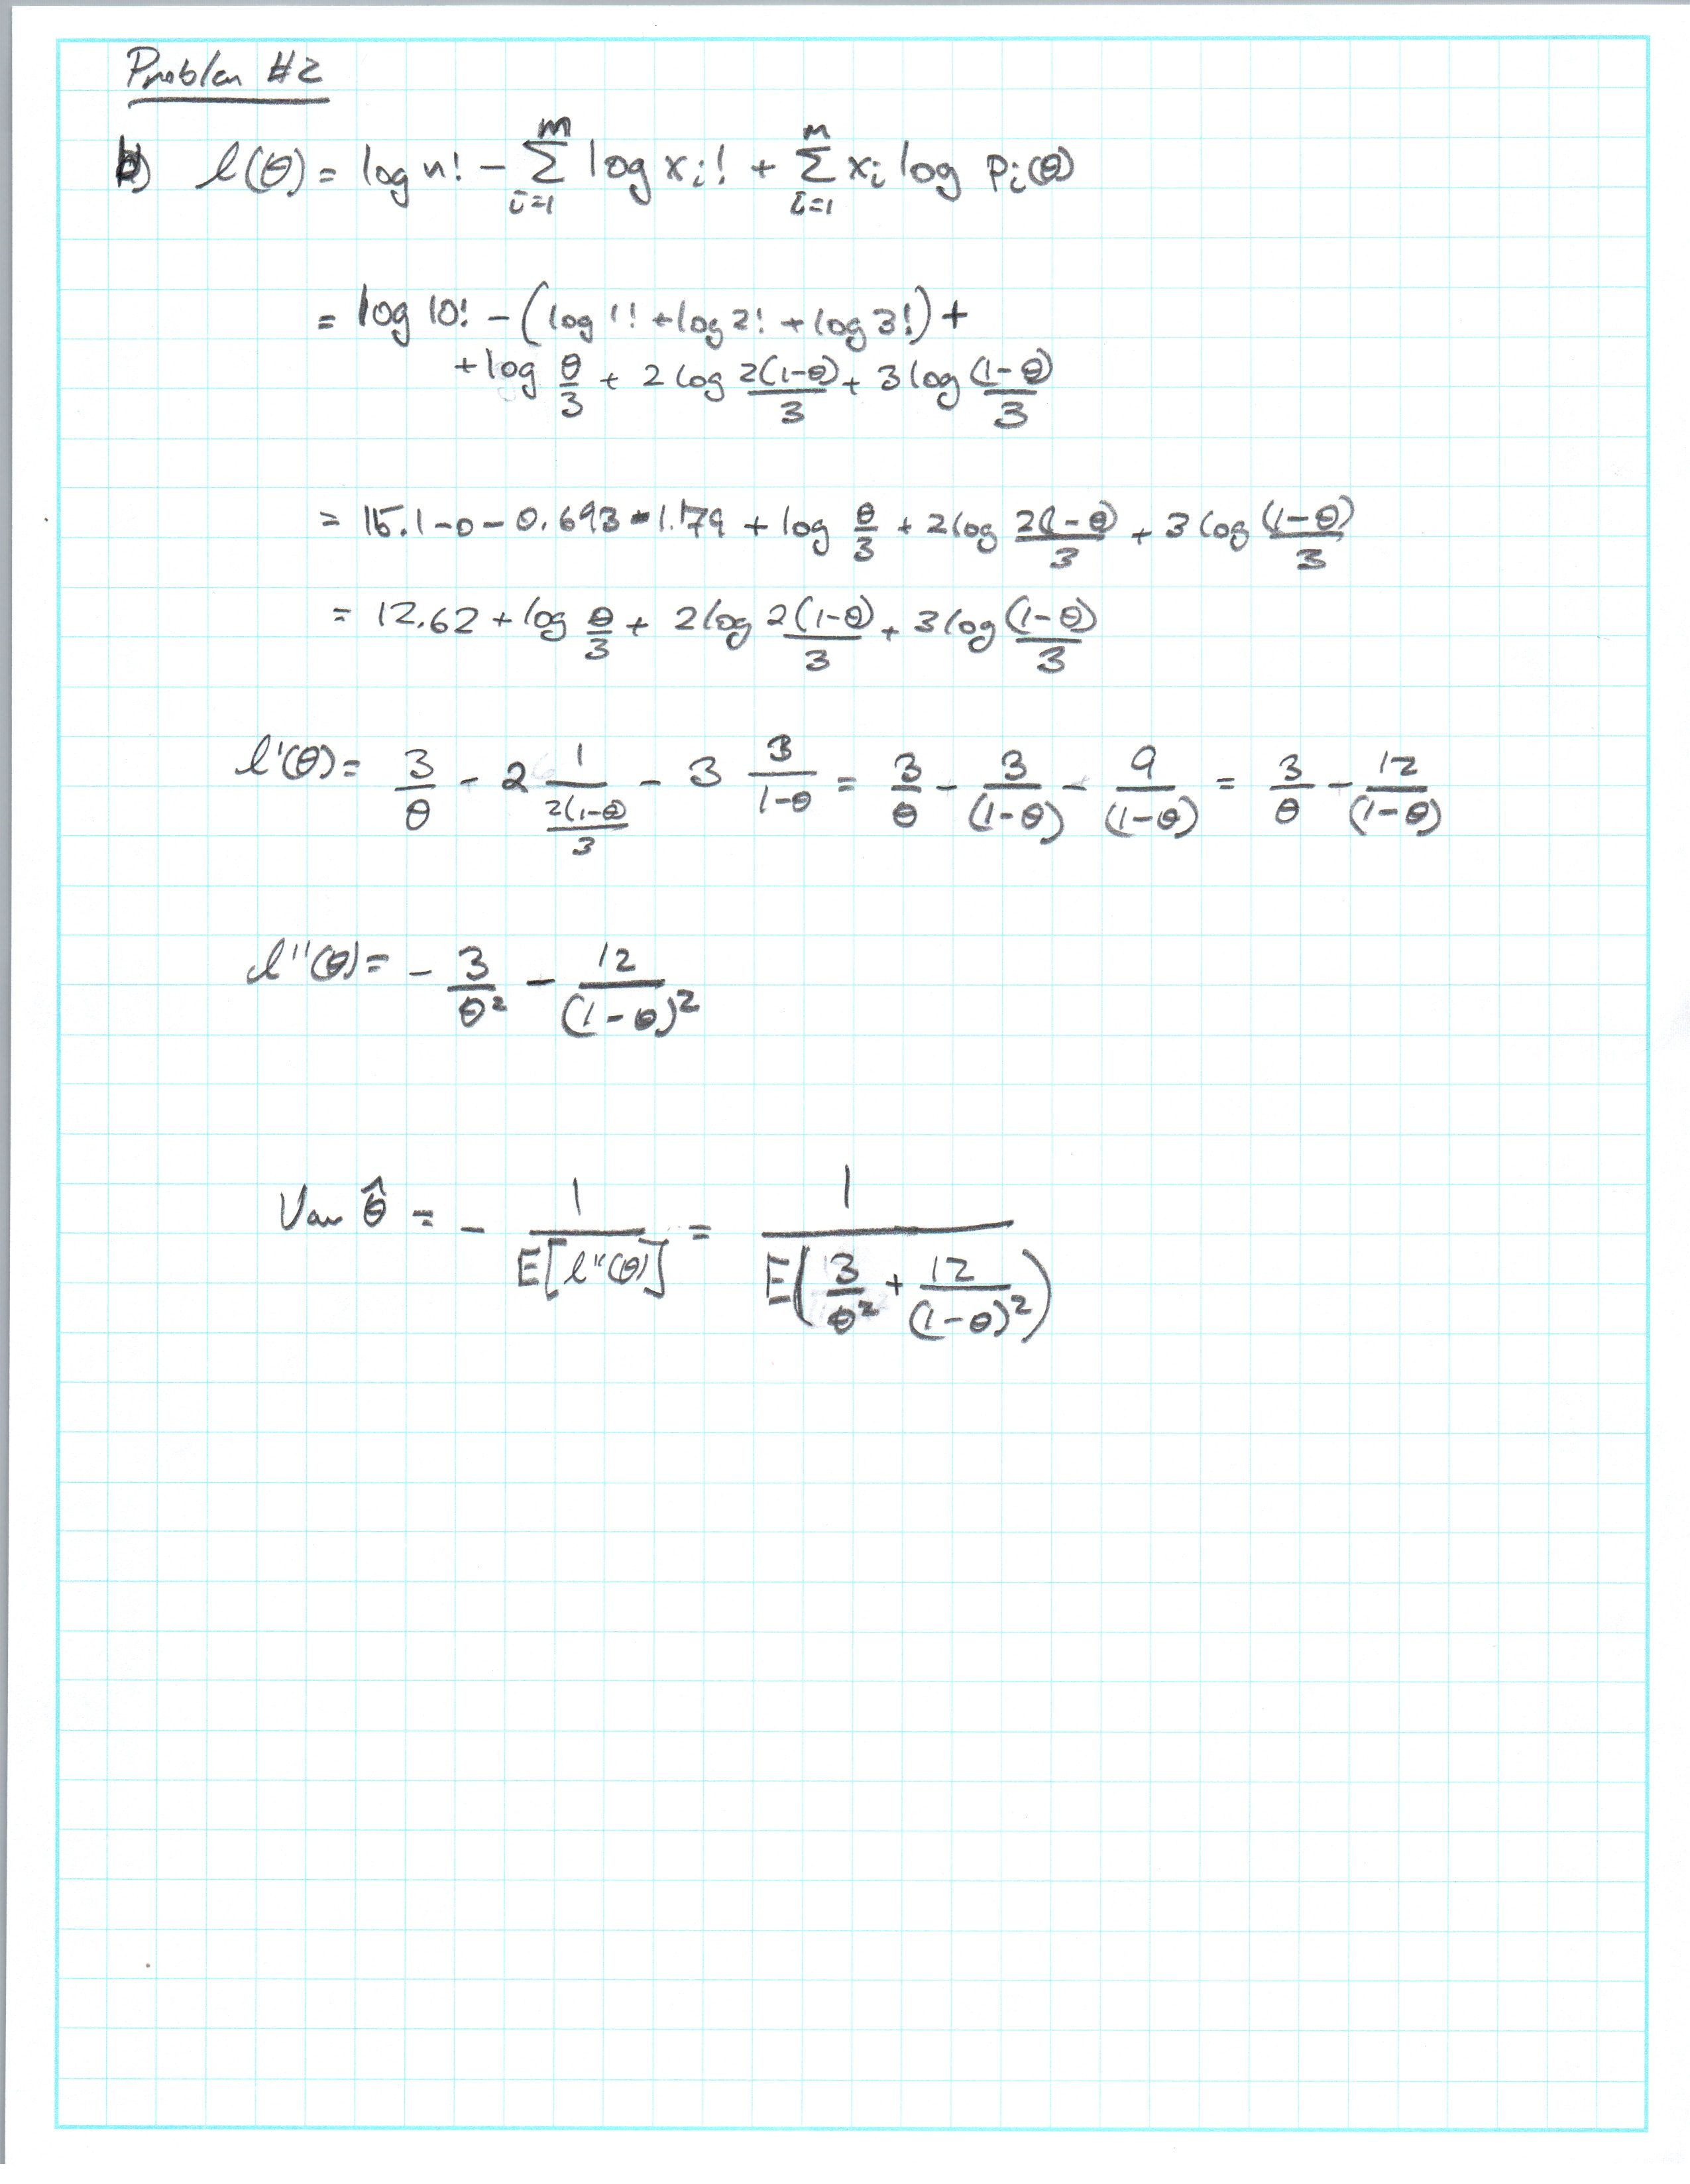 Problem #2
b) l(θ) = log n! - Σ_{i=1}^{m} log x_i! + Σ_{i=1}^{m} x_i log p_i(θ)
= log 10! - (log 1! + log 2! + log 3!) +
+ log θ/3 + 2 log 2(1-θ)/3 + 3 log (1-θ)/3
= 15.1 - 0 - 0.693 - 1.179 + log θ/3 + 2 log 2(1-θ)/3 + 3 log (1-θ)/3
= 12.62 + log θ/3 + 2 log 2(1-θ)/3 + 3 log (1-θ)/3
l'(θ) = 3/θ - 2 1/(2(1-θ)/3) - 3 3/(1-θ) = 3/θ - 3/(1-θ) - 9/(1-θ) = 3/θ - 12/(1-θ)
l''(θ) = - 3/θ² - 12/(1-θ)²
Var θ̂ = - 1/E[l''(θ)] = 1/E(3/θ² + 12/(1-θ)²)